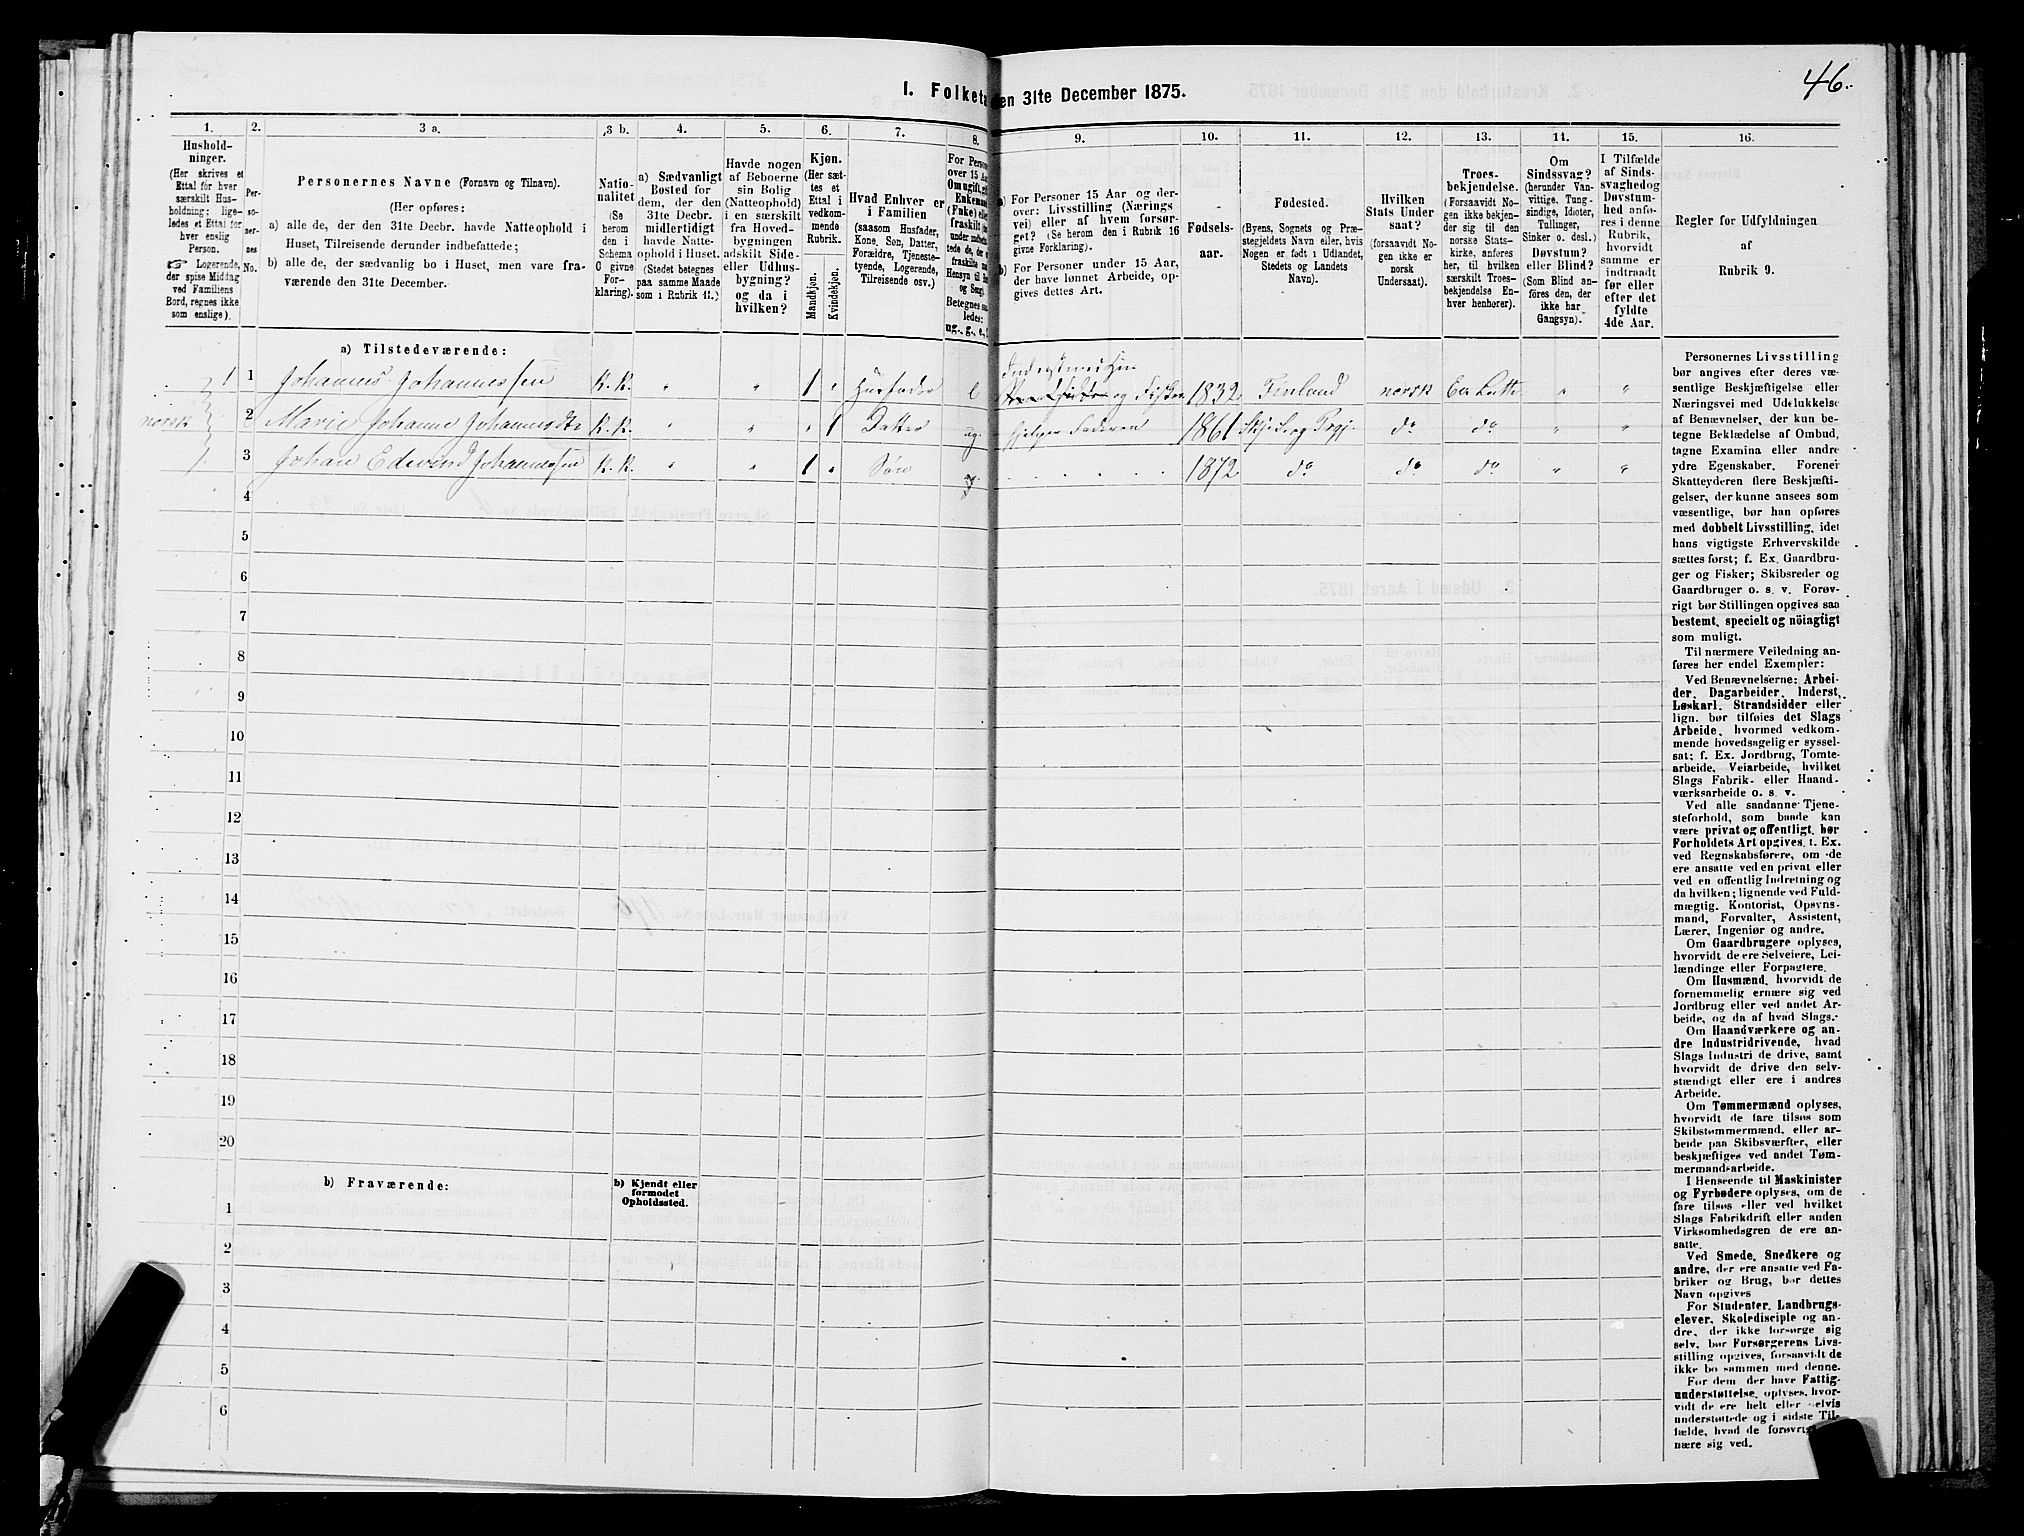 46.
1. Folketa
en 31te December 1875.
1.
2.
3 a.
3 b.
4.
5.
6.
7.
8.
9.
10.
11.
12.
13.
14.
15.
16.
Hushold-
ninger.
(Her skrives et
Ettal for hver
særskilt Hus-
holdning; lige-
ledes et Ettal for
hver enslig
Person.
☞ Logerende,
der spise Middag
ved Familiens
Bord, regnes ikke
som enslige).
Per-
so-
ner-
nes
No.
Personernes Navne (Fornavn og Tilnavn).
(Her opføres:
a) alle de, der den 31te Decbr. havde Natteophold i
Huset, Tilreisende derunder indbefattede;
b) alle de, der sædvanlig bo i Huset, men vare fra-
værende den 31te December.
Natio-
nalitet
(Se
herom
den i
Schema
C givne
For-
klaring).
a) Sædvanligt
Bosted for
dem, der den
31te Decbr.
midlertidigt
havde Natte-
ophold i Huset.
(Stedet betegnes
paa samme Maade
som i Rubrik 11.)
Havde nogen
af Beboerne
sin Bolig
(Natteophold)
i en særskilt
fra Hoved-
bygningen
adskilt Side-
eller Udhus-
bygning?
og da i
hvilken?
Kjøn.
(Her sæt-
tes et
Ettal i
vedkom-
mende
Rubrik.
Mandkjøn.
Kvindekjøn.
Hvad Enhver er
i Familien
(saasom Husfader,
Kone, Søn, Datter,
Forældre, Tjeneste-
tyende, Logerende,
Tilreisende osv.)
For Perso
over 15 Aa
Om ugift, gif
Enkeman
(Enke) elle
fraskilt
ledes:
ug., g., e.,
a) For Personer 15 Aar og der-
over: Livsstilling (Nærings
vei) eller af hvem forsør-
get? (Se herom den i Rubrik 16
givne Forklaring).
b) For Personer under 15 Aar,
der have lønnet Arbeide, op-
gives dettes Art.
Fødsels-
aar.
Fødested.
(Byens, Sognets og Præ-
stegjeldets Navn eller, hvis
Nogen er født i Udlandet,
Stedets og Landets
Navn).
Hvilken
Stats Under
saat?
(forsaavidt No-
gen ikke er
norsk
Undersaat).
Troes-
bekjendelse.
(Forsaavidt No-
gen ikke bekjen-
der sig til den
norske Stats-
kirke, anføres
her, til hvilken
særskilt Troes-
bekjendelse En-
hver henhører).
Om
Sindssvag?
(herunder Van-
vittige, Tung-
sindige, Idioter,
Tullinger,
Sinker o. desl.)
Døvstum?
eller Blind?
(Som Blind an-
føres den, der
ikke har
Gangsyn).
I Tilfælde
af Sinds-
svaghed og
Døvstum-
hed anfø-
res i denne
Rubrik,
hvorvidt
samme er
indtraadt
før eller
efter det
fyldte
4de Aar.
Regler for Udfyldningen
af
Rubrik 9.
a) Tilstedeværende:
1 1 Johannes Johannessen K. K. " " 1 " Husfader e og Fisker 1832 Finland norsk Ev. Luth " "
norsk 2 Marie Johanne Johannesdtr K. K. " " " 1 Datter ug. hjelper Faderen 1861 Skjervø Prgj. do do " "
3 Johan Edevind Johannessen K. K. " " 1 " Søn 1872 do do do " "
4
5
6
7
8
9
10
11
12
13
14
15
16
17
18
19
20
b) Fraværende:
b) Kjendt eller
formodet
Opholdssted.
1
2
3
4
5
6
Personernes Livsstilling
bør angives efter deres væ-
sentlige Beskjæftigelse eller
Næringsvei med Udelukkelse
af Benævnelser, der kun be-
tegne Beklædelse af Ombud,
tagne Examina eller andre
ydre Egenskaber. Forener
Skatteyderen flere Beskjæfti-
gelser, der kunne ansees som
væsentlige, bør han opføres
med dobbelt Livsstilling, idet
hans vigtigste Erhvervskilde
sættes først; f. Ex. Gaardbru-
ger og Fisker; Skibsreder og
Gaardbruger o. s. v. Forøv-
rigt bør Stillingen opgives saa
bestemt, specielt og nöiagtigt
som muligt.
Til nærmere Veiledning an-
føres her endel Exempler:
Ved Benævnelserne: Arbei-
der, Dagarbeider, Inderst,
Løskarl, Strandsidder eller
lign. bør tilføies det Slags
Arbeide, hvormed vedkom-
mende hovedsagelig er syssel-
sat; f. Ex. Jordbrug, Tomte-
arbeide, Veiarbeide, hvilket
Slags Fabrik- eller Haand-
værksarbeide o. s. v.
Ved alle saadanne Tjene-
steforhold, som baade kan
være privat og offentligt, bør
Forholdets Art opgives, f. Ex.
ved Regnskabsførere, om de
ere ansatte ved en privat eller
ved en offentlig Indretning og
da hvilken; lignende ved Fuld-
mægtig, Kontorist, Opsyns-
mand, Forvalter, Assistent,
Lærer, Ingeniør og andre.
Om Gaardbrugere oplyses,
hvorvidt de ere Selveiere, Lei-
lændinge eller Forpagtere.
Om Husmænd, hvorvidt de
fornemmelig ernære sig ved
Jordbrug eller ved andet Ar-
beide, og da af hvad Slags.
Om Haandværkere og an-
dre Industridrivende, hvad
Slags Industri de drive, samt
hvorvidt de drive den selv-
stændigt eller ere i andres
Arbeide.
Om Tømmermænd oplyses,
hvorvidt de fare tilsøs som
Skibstømmermænd, eller ar-
beide paa Skibsværfter, eller
beskjæftiges ved andet Tøm-
mermandsarbeide.
I Henseende til Maskinister
og Fyrbødere oplyses, om de
fare tilsøs eller ved hvilket
Slags Fabrikdrift eller anden
Virksomhedsgren de ere an-
satte.
Ved Smede, Snedkere og
andre, der ere ansatte ved Fa-
briker og Brug, bør dettes
Navn opgives
For Studenter, Landbrugs-
elever, Skoledisciple og an-
dre, der ikke forsørge sig
selv, bør Forsørgerens Livs-
stilling opgives, forsaavidt de
ikke bo sammen med denne.
For dem, der have Fattig-
understøttelse, oplyses, hvor-
vidt de ere helt eller delvis
understøttede og i sidste Til-
fælde, hvad de forøvrigt
nære sig ved.